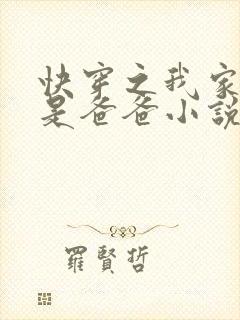 快穿之我家
是爸爸小說
羅賢哲